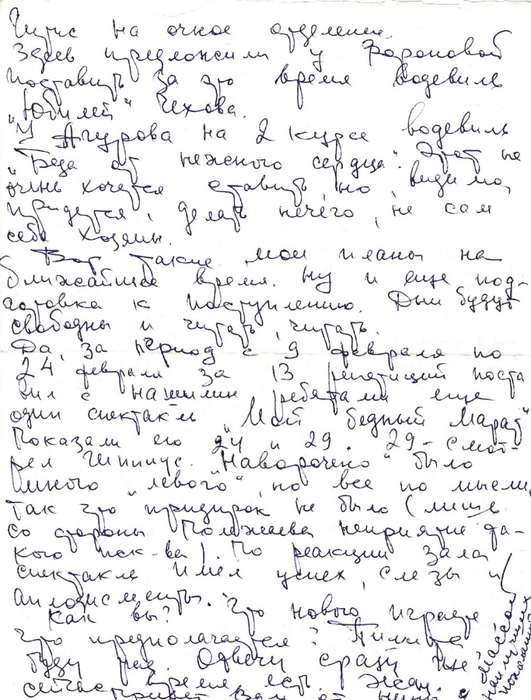 на очное отделение.
Здесь предложили у Фароновой
поставить за это время водевиль
"Юбилей" Чехова.
У Ачурова на 2 курсе водевиль
"Беда от нежного сердца". Этот не
очень хочется ставить, но, видимо,
придется, делать нечего, не сам
себе хозяин.
Вот такие мои планы на
ближайшее время. Ну и еще под-
готовка к поступлению. Дни будут
свободны и читать, читать.
Да, за период с 9 февраля по
24 февраля за 13 репетиций поста
вил с нашими ребятами еще
один спектакль "Мой бедный Марат"
Показали его 24 и 29. 29 - смот-
рел Шипиус. "Наворочено" было
много "левого", но все по мысли,
так что придирок не было (лишь
со стороны неприятие та-
кого иск-ва). По реакции зала
спектакль имел успех, слезы и
аплодисменты.
Как вы? Что нового играете
Что предполагается? Пишите
буду рад. Отвечу сразу же
сейчас время есть. Жду.
Привет вам от